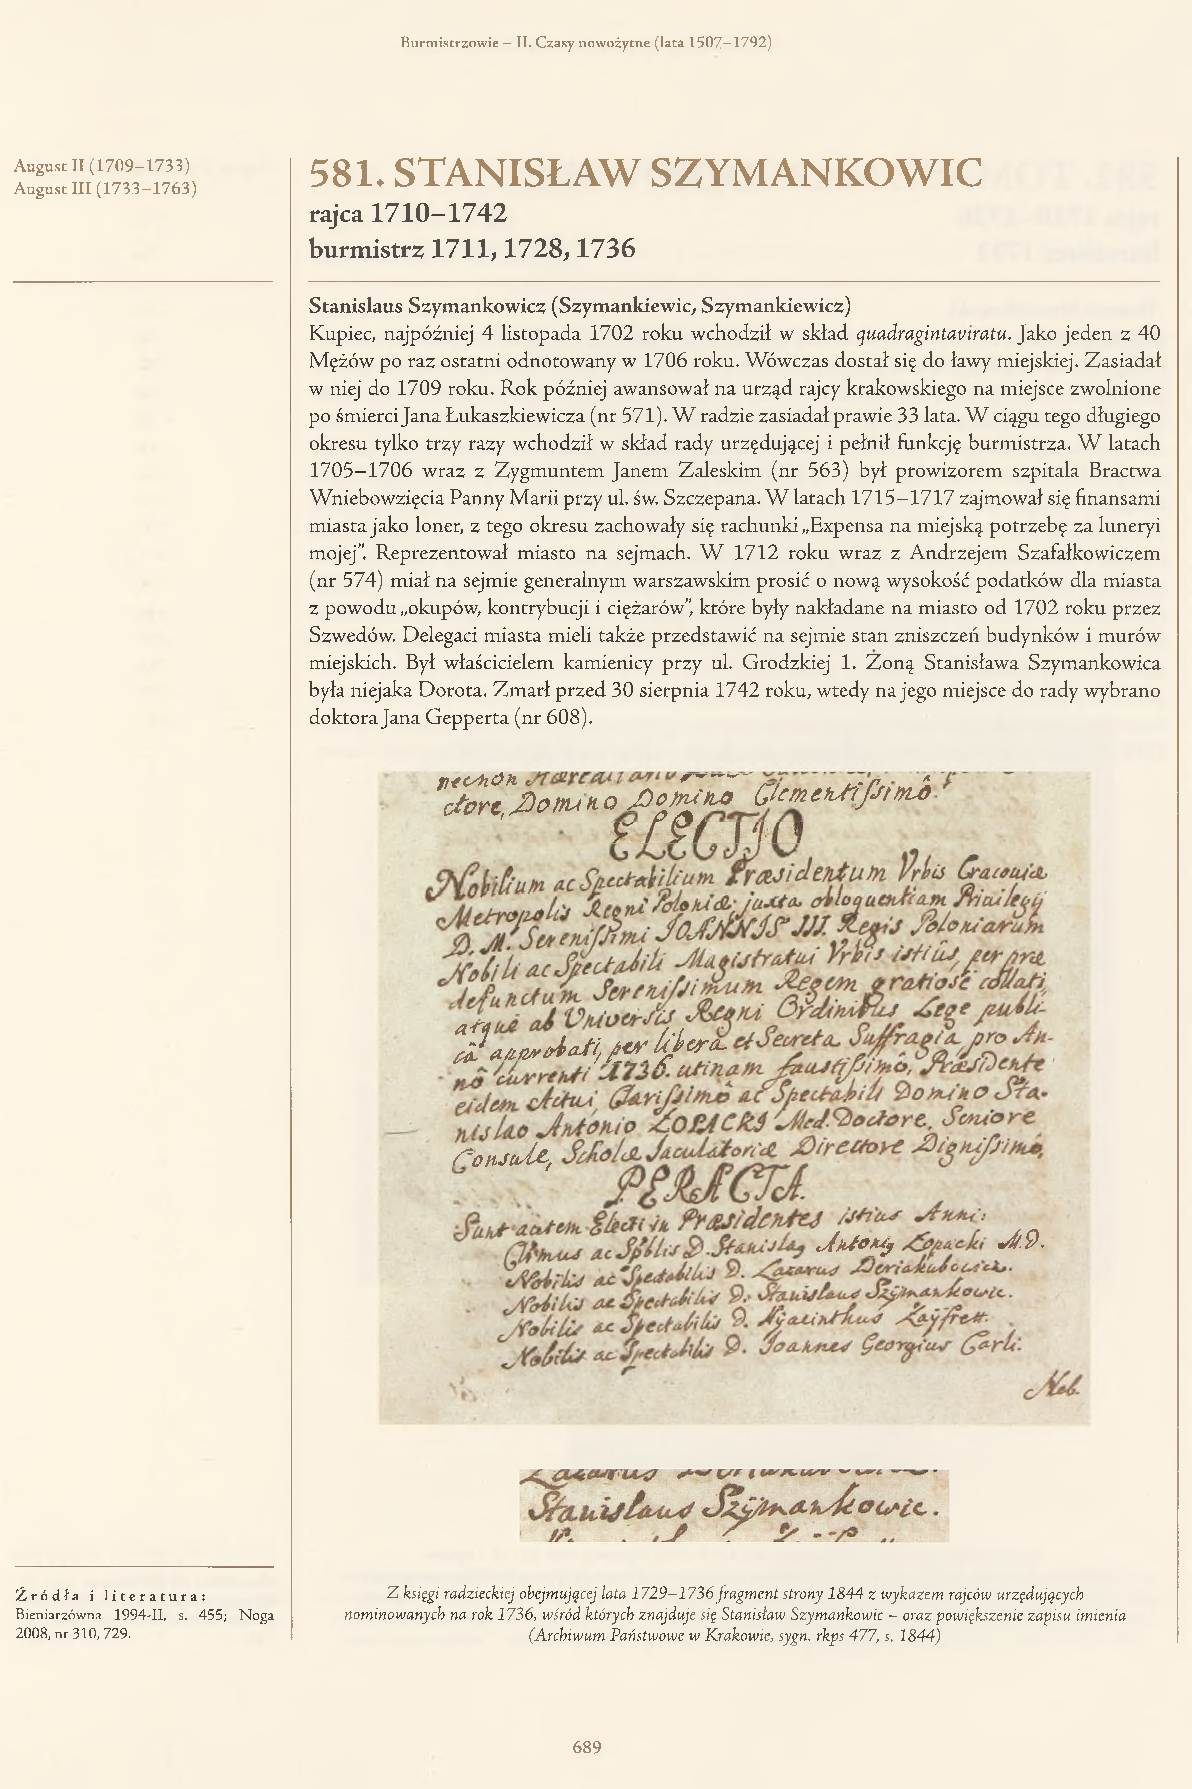 Burmistrzowie – II. Czasy nowożytne (lata 1507–1792)
August II (1709–1733)
August III (1733–1763)
581. STANISŁAW SZYMANKOWIC
rajca 1710–1742
burmistrz 1711, 1728, 1736
Stanislaus Szymankowicz (Szymankiewic, Szymankiewicz)
Kupiec, najpóźniej 4 listopada 1702 roku wchodził w skład quadragintaviratu. Jako jeden z 40
Mężów po raz ostatni odnotowany w 1706 roku. Wówczas dostał się do ławy miejskiej. Zasiadał
w niej do 1709 roku. Rok później awansował na urząd rajcy krakowskiego na miejsce zwolnione
po śmierci Jana Łukaszkiewicza (nr 571). W radzie zasiadał prawie 33 lata. W ciągu tego długiego
okresu tylko trzy razy wchodził w skład rady urzędującej i pełnił funkcję burmistrza. W latach
1705–1706 wraz z Zygmuntem Janem Zaleskim (nr 563) był prowizorem szpitala Bractwa
Wniebowzięcia Panny Marii przy ul. św. Szczepana. W latach 1715–1717 zajmował się finansami
miasta jako loner, z tego okresu zachowały się rachunki „Expensa na miejską potrzebę za luneryi
mojej”. Reprezentował miasto na sejmach. W 1712 roku wraz z Andrzejem Szafałkowiczem
(nr 574) miał na sejmie generalnym warszawskim prosić o nową wysokość podatków dla miasta
z powodu „okupów, kontrybucji i ciężarów”, które były nakładane na miasto od 1702 roku przez
Szwedów. Delegaci miasta mieli także przedstawić na sejmie stan zniszczeń budynków i murów
miejskich. Był właścicielem kamienicy przy ul. Grodzkiej 1. Żoną Stanisława Szymankowica
była niejaka Dorota. Zmarł przed 30 sierpnia 1742 roku, wtedy na jego miejsce do rady wybrano
doktora Jana Gepperta (nr 608).
ctore, Domino Domino Clementissimô
ELECTIO
Nobilium ac Spectabilium Præsidentum Vrbis Cracouiæ
Metropolis Regni Poloniæ juxta obloquentiam Priuilegÿ
D. M. Serenissimi IOANNIS III. Regis Poloniarum
Nobili ac Spectabili Magistratui Vrbis istiûs, per præ
defunctum Serenissimum Regem gratiosè collati,
atquè ab Vniversis Regni Ordinibus Lege publi-
câ approbati, per libera et Secreta Suffragia pro An-
nô currenti 1736. utinam faustissimô, Præsidente
eidem Actui, Clarissimô ac Spectabili Domino Sta-
nislao Antonio ŁOPACKI Med. Doctore, Seniore
Consule, Scholæ Jaculatoriæ Directore Dignissimô,
PERACTA.
Sunt autem Electi in Præsidentes istius Anni:
Clrmus ac Spblis D. Stanislaq Antoniq Łopacki M.D.
Nobilis ac Spectabilis D. Lazarus Deriakubowicz.
Nobilis ac Spectabilis D. Stanislaus Szÿmankowic.
Nobilis ac Spectabilis D. Hyacinthus Łaÿfrett.
Nobilis ac Spectabilis D. Joannes Georgius Carli.
Stanislaus Szÿmankowic.
Źródła i literatura:
Bieniarzówna 1994-II, s. 455; Noga
2008, nr 310, 729.
Z księgi radzieckiej obejmującej lata 1729–1736 fragment strony 1844 z wykazem rajców urzędujących
nominowanych na rok 1736, wśród których znajduje się Stanisław Szymankowic – oraz powiększenie zapisu imienia
(Archiwum Państwowe w Krakowie, sygn. rkps 477, s. 1844)
689